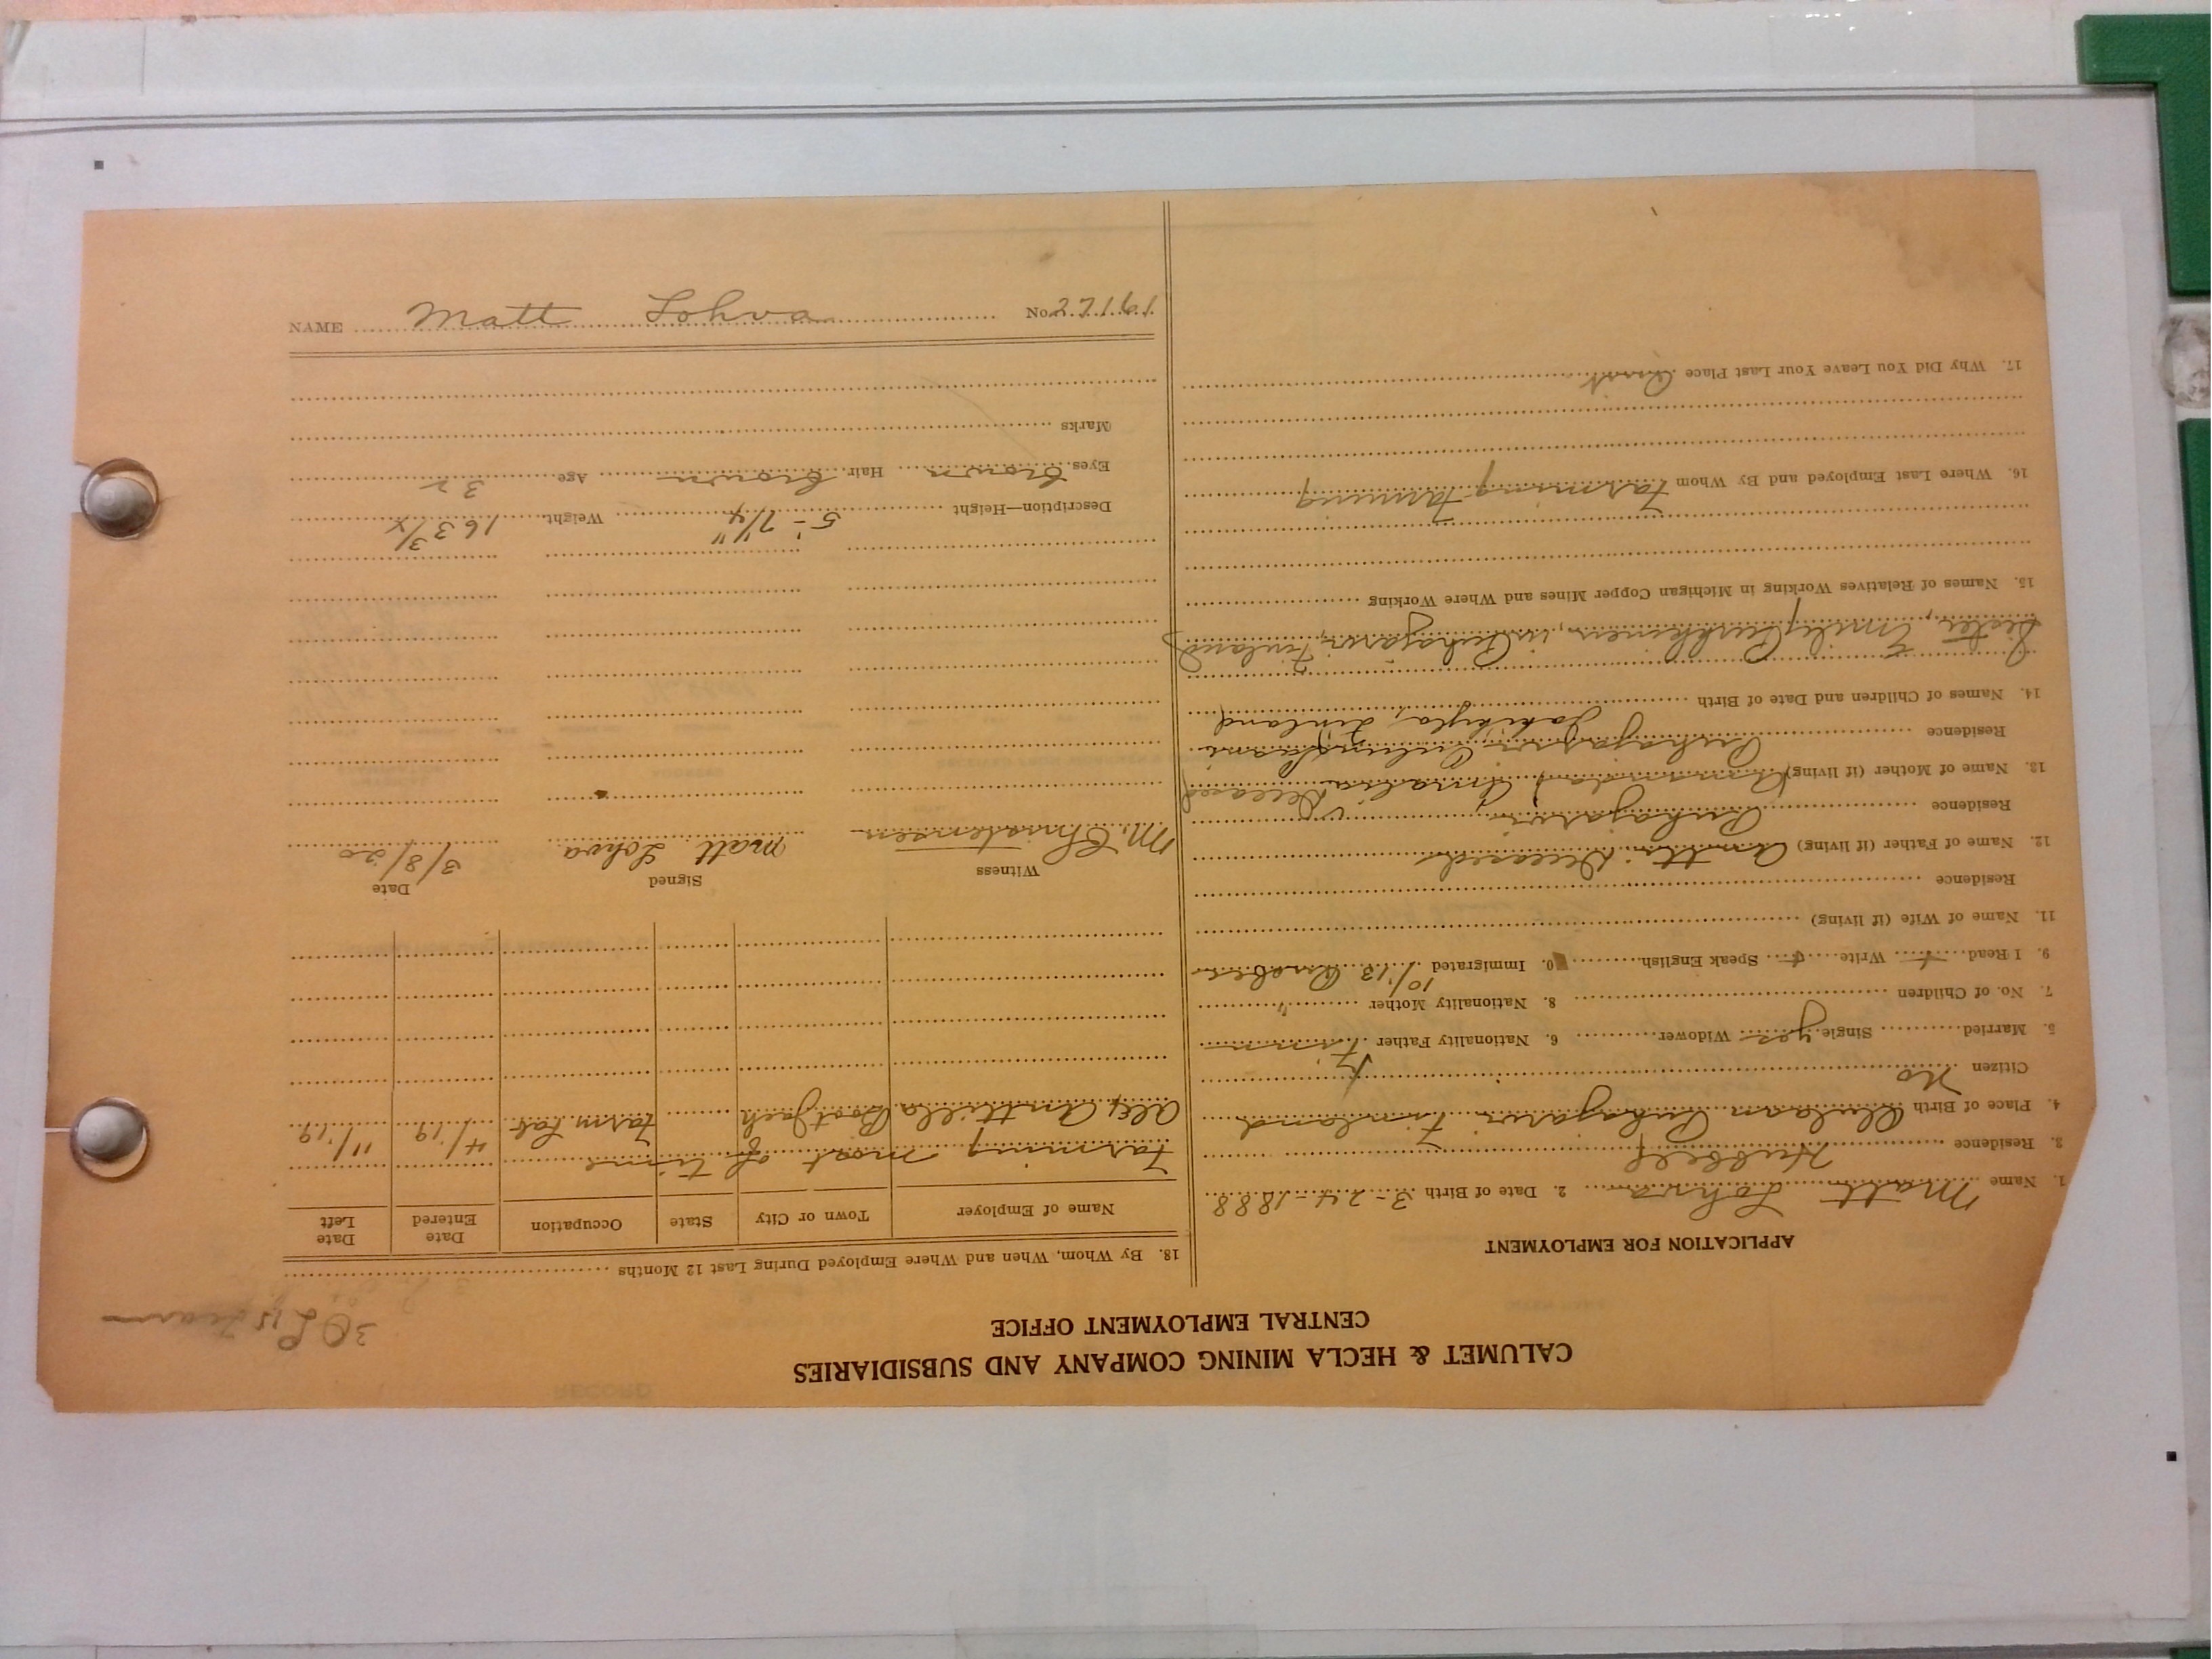 CALUMET & HECLA MINING COMPANY AND SUBSIDIARIES
CENTRAL EMPLOYMENT OFFICE
APPLICATION FOR EMPLOYMENT
1. Name Matt Lohva 2. Date of Birth 3-24-1888
3. Residence Hubbell
4. Place of Birth Oulaan Puhajarvi Finland
Citizen No
5. Married Single yes Widower 6. Nationality Father Finn
7. No. of Children 8. Nationality Mother "
9. I Read + Write + Speak English 0. Immigrated 10/13
11. Name of Wife (if living)
Residence
12. Name of Father (if living) Antti Deceased
Residence Puhajarvi
13. Name of Mother (if living) Amalia Deceased
Residence Puhajarvi
Finland
14. Names of Children and Date of Birth
Sister, Emily in Puhajarvi, Finland
15. Names of Relatives Working in Michigan Copper Mines and Where Working
16. Where Last Employed and By Whom Farming Farming
17. Why Did You Leave Your Last Place Quit
18. By Whom, When and Where Employed During Last 12 Months
Name of Employer Town or City State Occupation Date Entered Date Left
Farming most of time
Alex Anttila Boot Jack Farm Lab 4/19 11/19
Witness Signed Date
M. Christensen Matt Lohva 3/8/20
Description—Height 5'-7 1/4" Weight 163 1/2
Eyes brown Hair brown Age 32
Marks
NAME Matt Lohva No. 22161